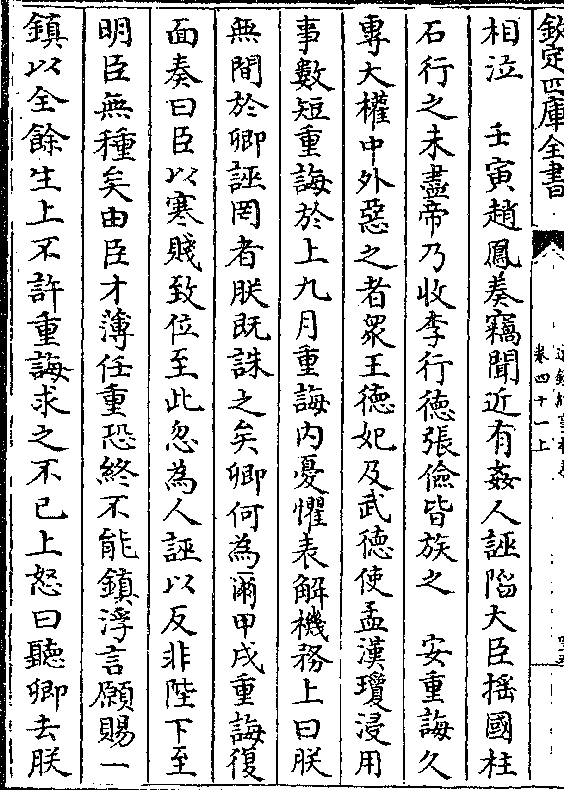 欽定四庫全書
卷四十一上
相泣　壬寅趙鳳奏竊聞近有姦人誣陷大臣揺國柱
石行之未盡帝乃收李行德張儉皆族之　安重誨久
專大權中外惡之者衆王德妃及武德使孟漢瓊浸用
事數短重誨於上九月重誨内憂懼表解機務上曰朕
無間於卿誣罔者朕既誅之矣卿何為爾甲戌重誨復
面奏曰臣以寒賤致位至此忽為人誣以反非陛下至
明臣無種矣由臣才薄任重恐終不能鎮浮言願賜一
鎮以全餘生上不許重誨求之不已上怒曰聽卿去朕